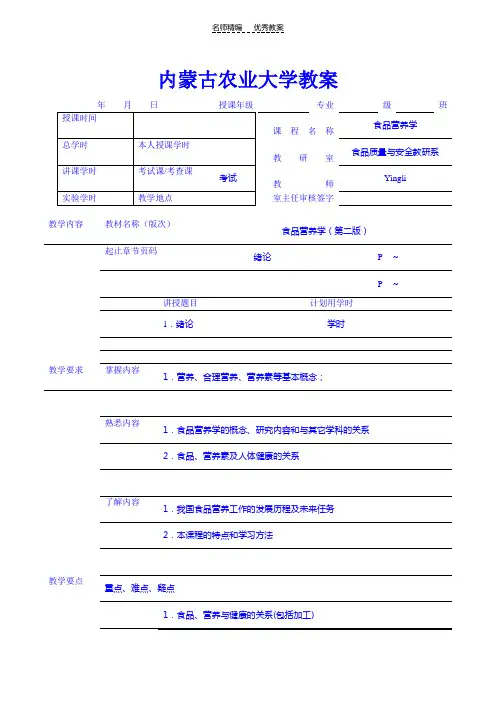 名师精编 优秀教案
内蒙古农业大学教案
年 月 日 授课年级 专业 级 班
授课时间
课 程 名 称 食品营养学
总学时 本人授课学时
教 研 室 食品质量与安全教研系
讲课学时 考试课/考查课 考试
教 师 Yingli
实验学时 教学地点 室主任审核签字
教学内容 教材名称（版次） 食品营养学（第二版）
起止章节页码 绪论 P ~
P ~
讲授题目 计划用学时
1．绪论 学时
教学要求 掌握内容 1．营养、合理营养、营养素等基本概念；
熟悉内容 1．食品营养学的概念、研究内容和与其它学科的关系
2．食品、营养素及人体健康的关系
了解内容 1．我国食品营养工作的发展历程及未来任务
2．本课程的特点和学习方法
教学要点 重点、难点、疑点
1．食品、营养与健康的关系(包括加工)